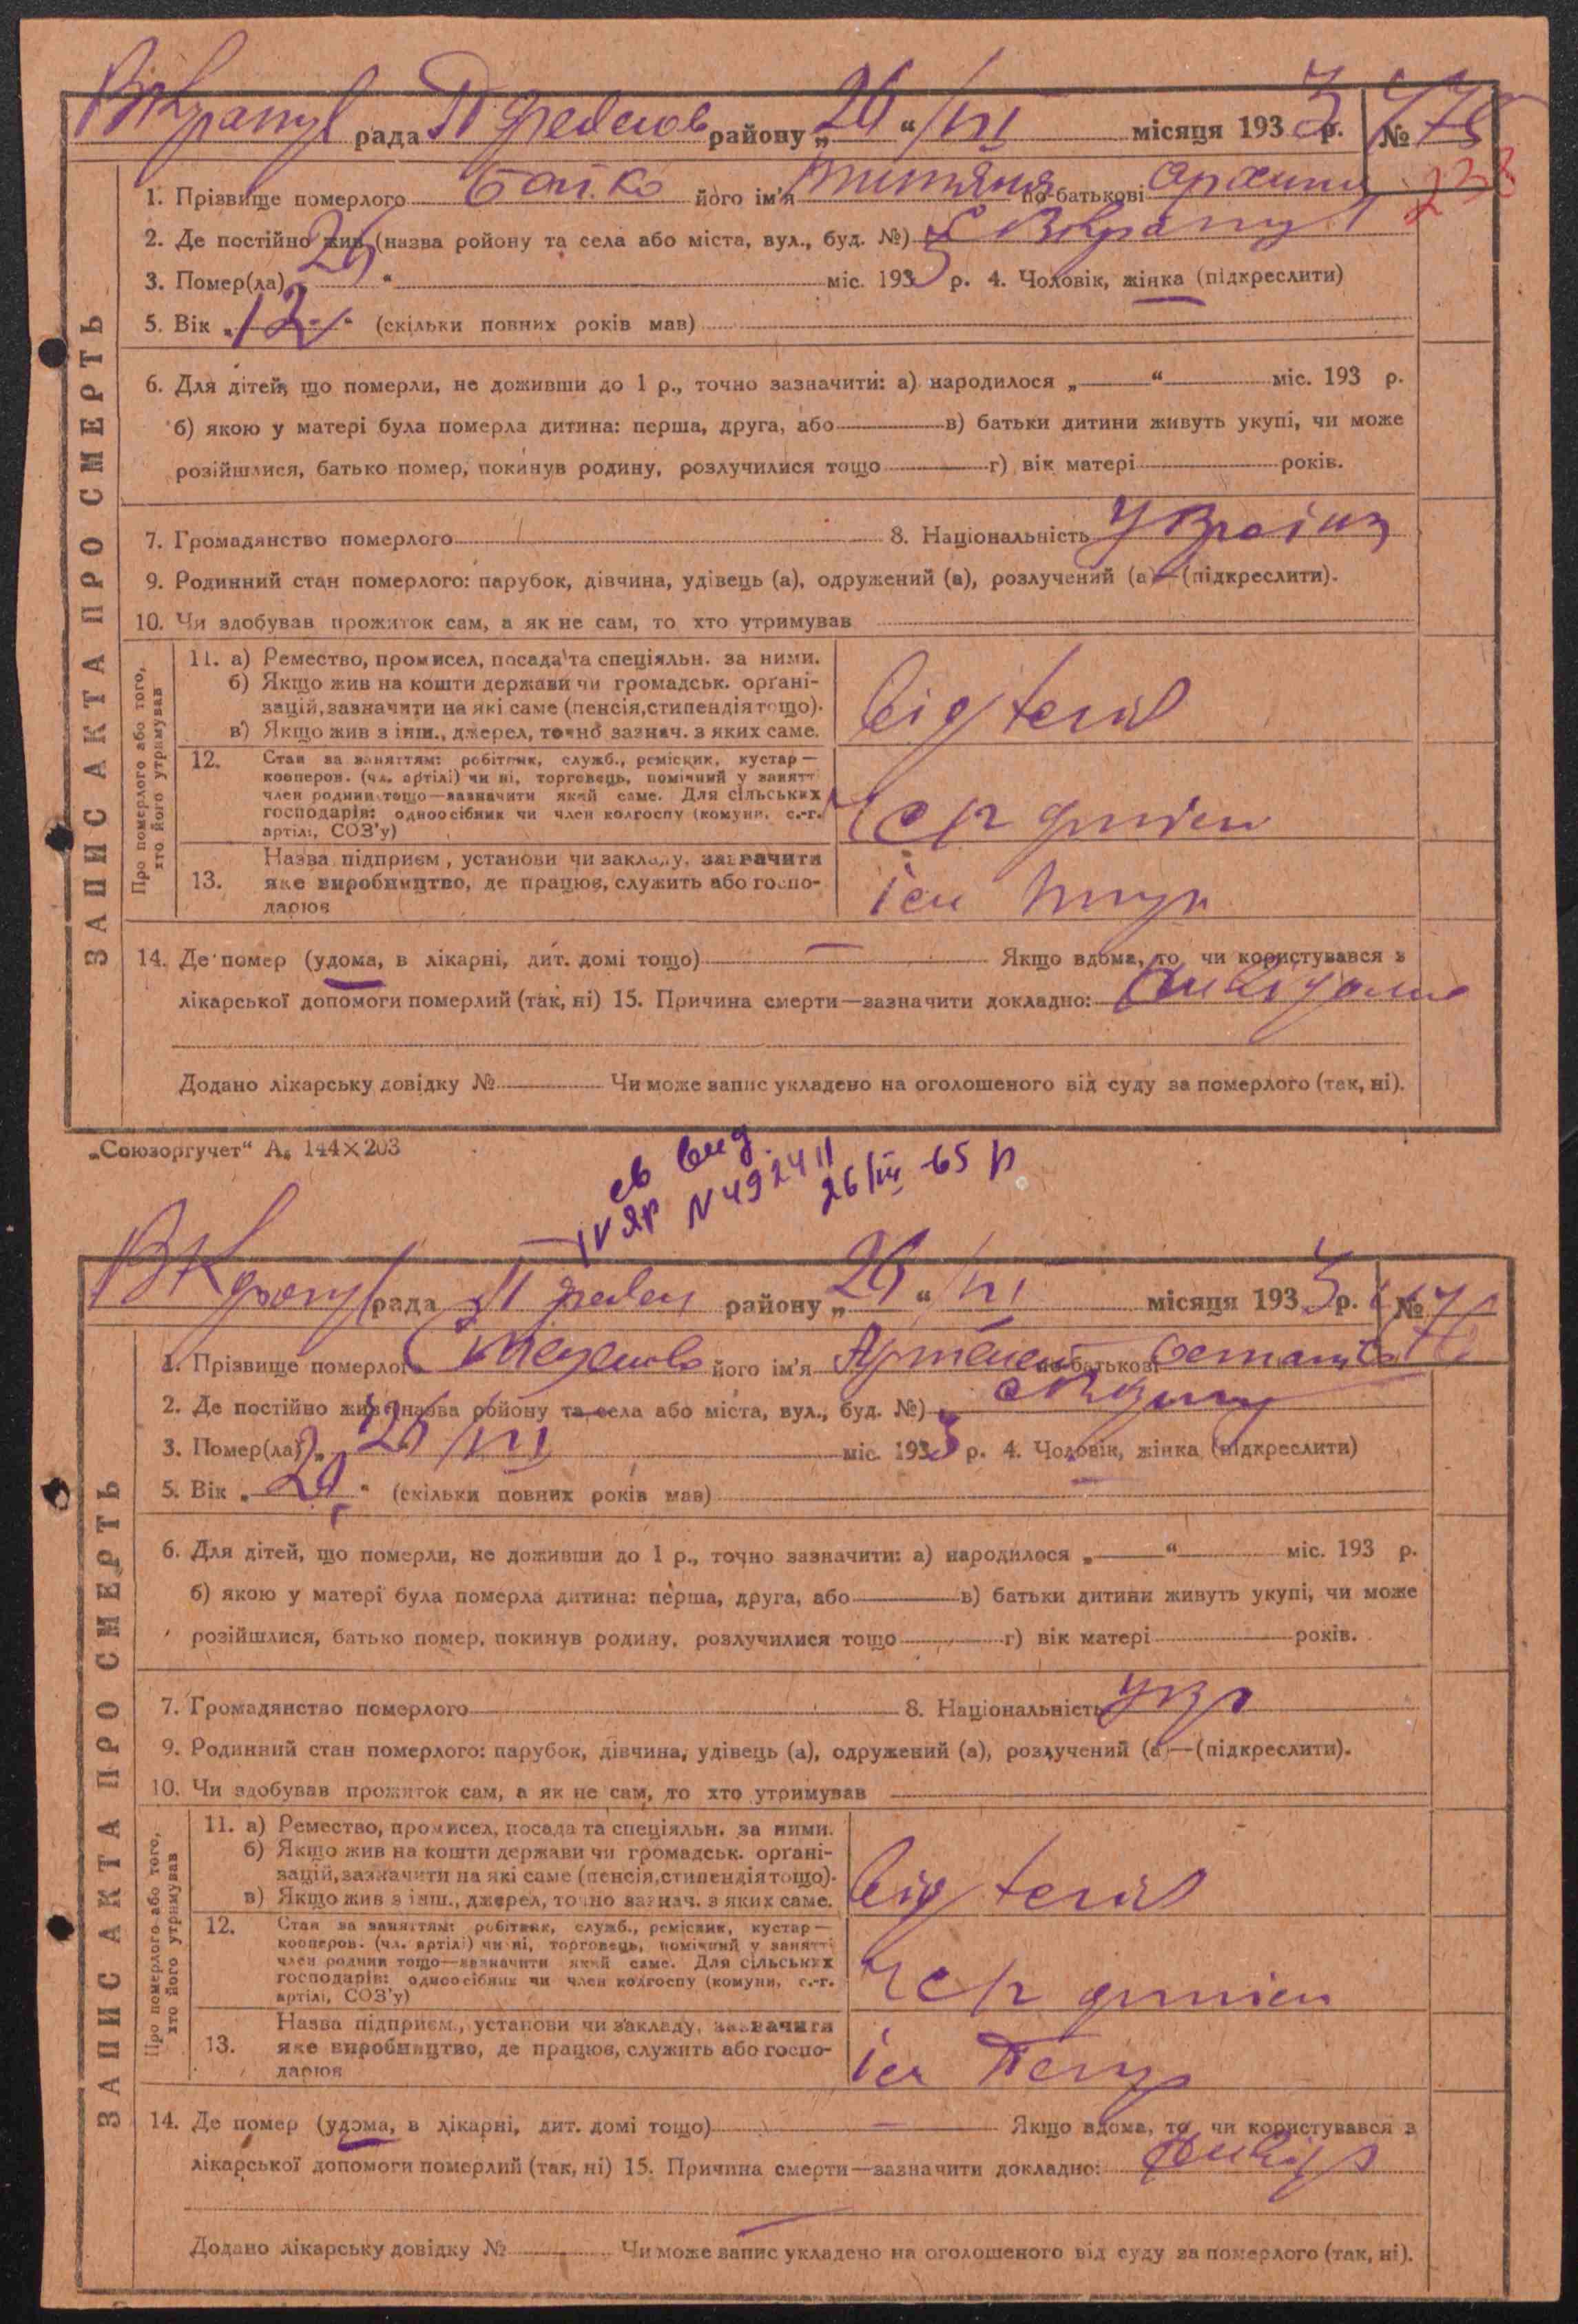 рада району „26“ /VII місяця 1933 р. №
ЗАПИС АКТА ПРО СМЕРТЬ
1. Прізвище померлого Бойко його ім'я по-батькові
2. Де постійно жив (назва ройону та села або міста, вул., буд. №)
3. Помер(ла) „26“ міс. 1933 р. 4. Чоловік, жінка (підкреслити)
5. Вік „12“ (скільки повних років мав)
6. Для дітей, що померли, не доживши до 1 р., точно зазначити: а) народилося „ “ міс. 193 р.
б) якою у матері була померла дитина: перша, друга, або в) батьки дитини живуть укупі, чи може
розійшлися, батько помер, покинув родину, розлучилися тощо г) вік матері років.
7. Громадянство померлого 8. Національність Україн
9. Родинний стан померлого: парубок, дівчина, удівець (а), одружений (а), розлучений (а)—(підкреслити).
10. Чи здобував прожиток сам, а як не сам, то хто утримував
Про померлого або того, хто його утримував
11. а) Ремество, промисел, посада та спеціяльн. за ними.
б) Якщо жив на кошти держави чи громадськ. орґані-
зацій, зазначити на які саме (пенсія, стипендія тощо).
в) Якщо жив з інш., джерел, точно зазнач. з яких саме.
12. Стан за заняттям: робітник, служб., ремісник, кустар—
кооперов. (чл. артілі) чи ні, торговець, помічний у занятт
член родини тощо—зазначити який саме. Для сільських
господарів: одноосібник чи член колгоспу (комуни, с.-г.
артілі, СОЗ'у)
13. Назва підприєм., установи чи закладу, зазначити
яке виробництво, де працює, служить або госпо-
дарює
14. Де помер (удома, в лікарні, дит. домі тощо) — Якщо вдома, то чи користувався з
лікарської допомоги померлий (так, ні) 15. Причина смерти—зазначити докладно:
Додано лікарську довідку № Чи може запис укладено на оголошеного від суду за померлого (так, ні).
„Союзоргучет“ А₆ 144×203
св вид.
IV ЯР N 492411
26/III -65 р
рада району „26“ /VII місяця 1933 р. №
ЗАПИС АКТА ПРО СМЕРТЬ
1. Прізвище померлого його ім'я по-батькові
2. Де постійно жив (назва ройону та села або міста, вул., буд. №)
3. Помер(ла) „ міс. 1933 р. 4. Чоловік, жінка (підкреслити)
5. Вік „ “ (скільки повних років мав)
6. Для дітей, що померли, не доживши до 1 р., точно зазначити: а) народилося „ “ міс. 193 р.
б) якою у матері була померла дитина: перша, друга, або в) батьки дитини живуть укупі, чи може
розійшлися, батько помер, покинув родину, розлучилися тощо г) вік матері років.
7. Громадянство померлого 8. Національність Укр
9. Родинний стан померлого: парубок, дівчина, удівець (а), одружений (а), розлучений (а)—(підкреслити).
10. Чи здобував прожиток сам, а як не сам, то хто утримував
Про померлого або того, хто його утримував
11. а) Ремество, промисел, посада та спеціяльн. за ними.
б) Якщо жив на кошти держави чи громадськ. орґані-
зацій, зазначити на які саме (пенсія, стипендія тощо).
в) Якщо жив з інш., джерел, точно зазнач. з яких саме.
12. Стан за заняттям: робітник, служб., ремісник, кустар—
кооперов. (чл. артілі) чи ні, торговець, помічний у занятті
член родини тощо—зазначити який саме. Для сільських
господарів: одноосібник чи член колгоспу (комуни, с.-г.
артілі, СОЗ'у)
13. Назва підприєм., установи чи закладу, зазначити
яке виробництво, де працює, служить або госпо-
дарює
14. Де помер (удома, в лікарні, дит. домі тощо) — Якщо вдома, то чи користувався з
лікарської допомоги померлий (так, ні) 15. Причина смерти—зазначити докладно:
Додано лікарську довідку № Чи може запис укладено на оголошеного від суду за померлого (так, ні).